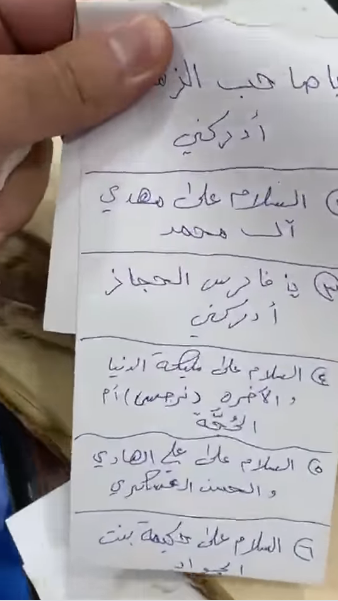 يا صاحب الزمان
أدركني
السلام على مهدي
آل محمد
٣) يا فارس الحجاز
أدركني
٤) السلام على مليكة الدنيا
والآخرة (نرجس) أم
الحُجَّة
٥) السلام على علي الهادي
والحسن العسكري
٦) السلام على حكيمة بنت
الجواد